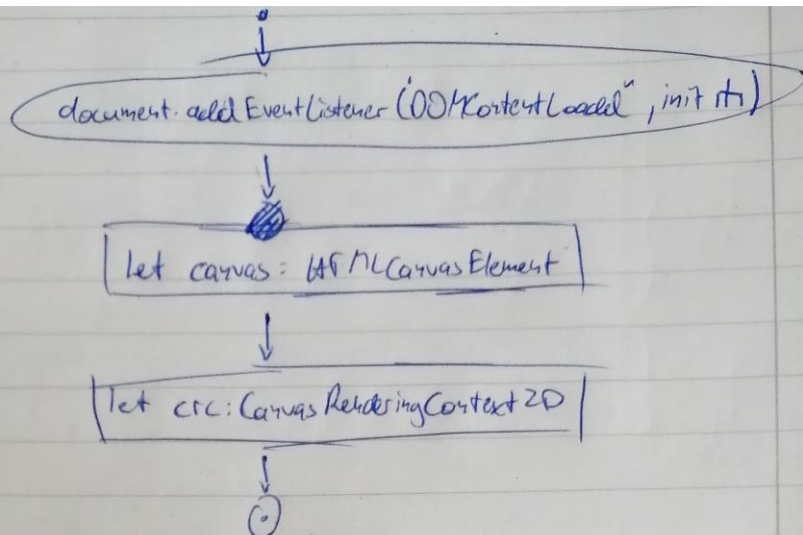 document.addEventListener("DOMContentLoaded", init
let canvas: HTMLCanvasElement
let crc: CanvasRenderingContext2D